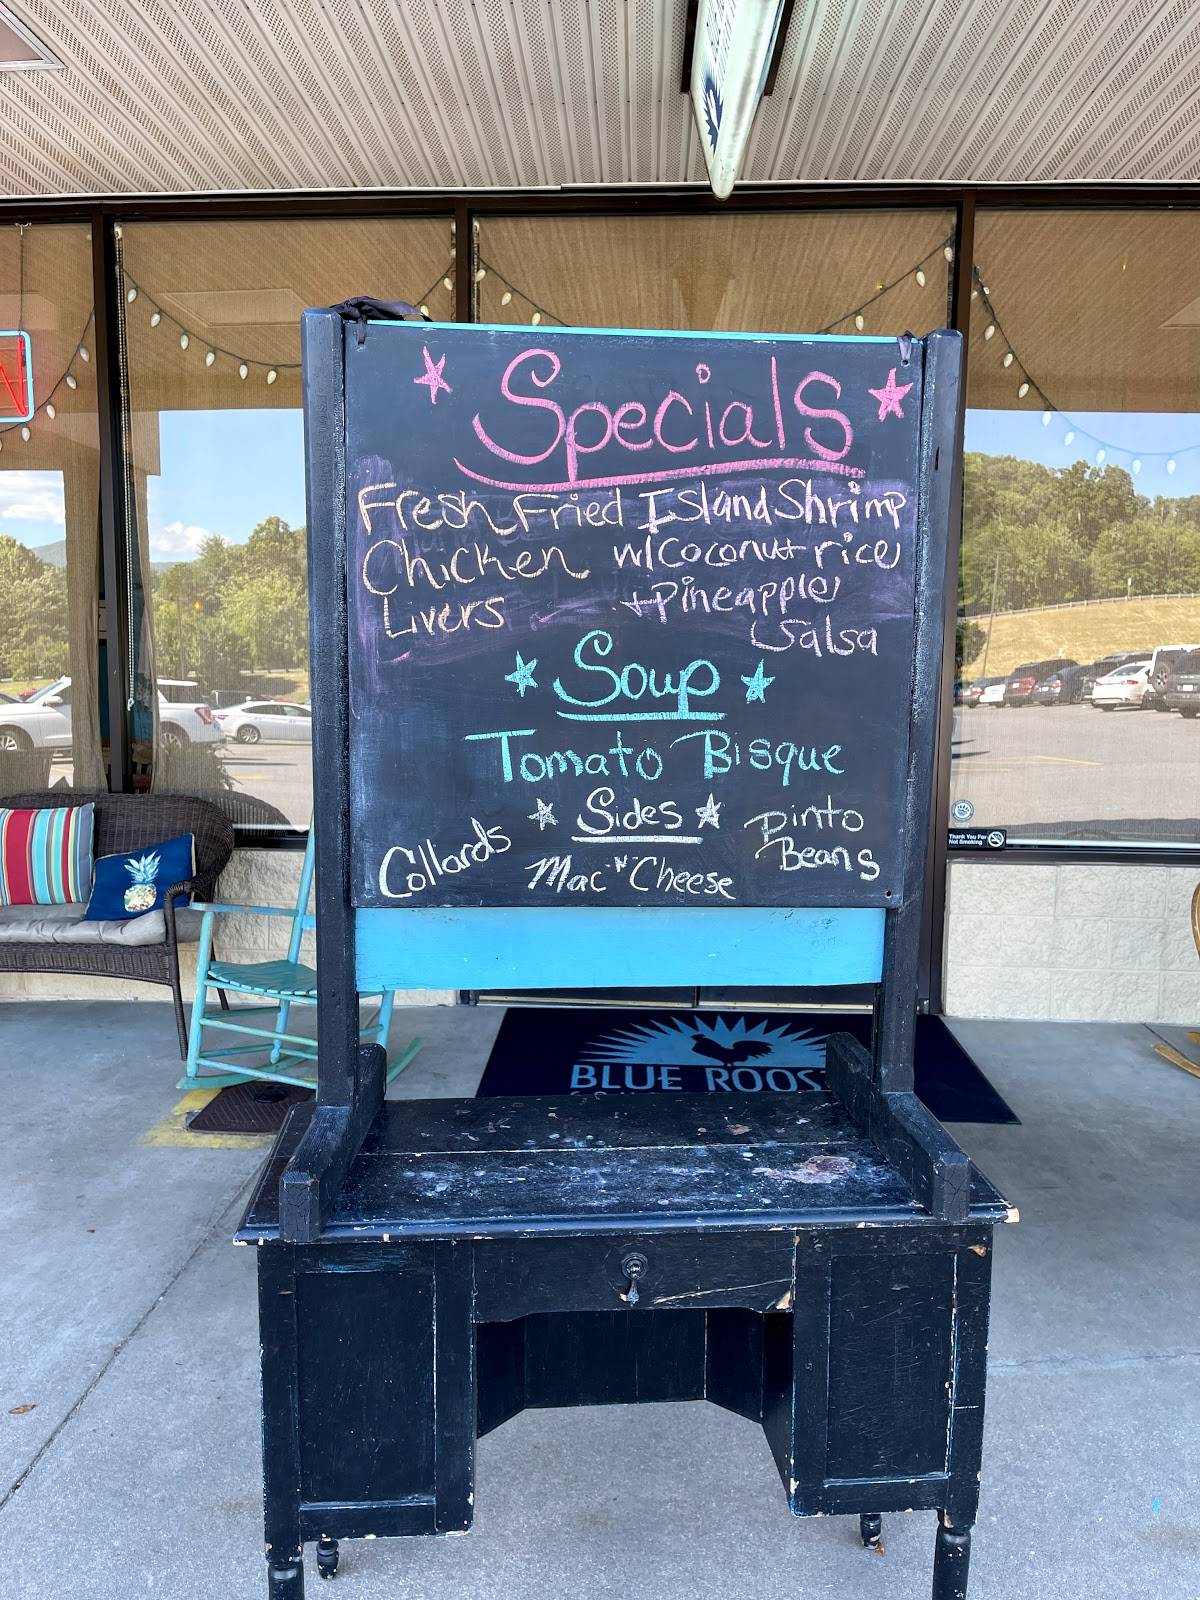 Specials
Fresh Fried
Chicken
Livers
Island Shrimp
w/Coconut rice
+Pineapple
Salsa
Soup
Tomato Bisque
Sides
Collards
Mac "N" Cheese
Pinto
Beans
Thank You For
Not Smoking
BLUE ROOS